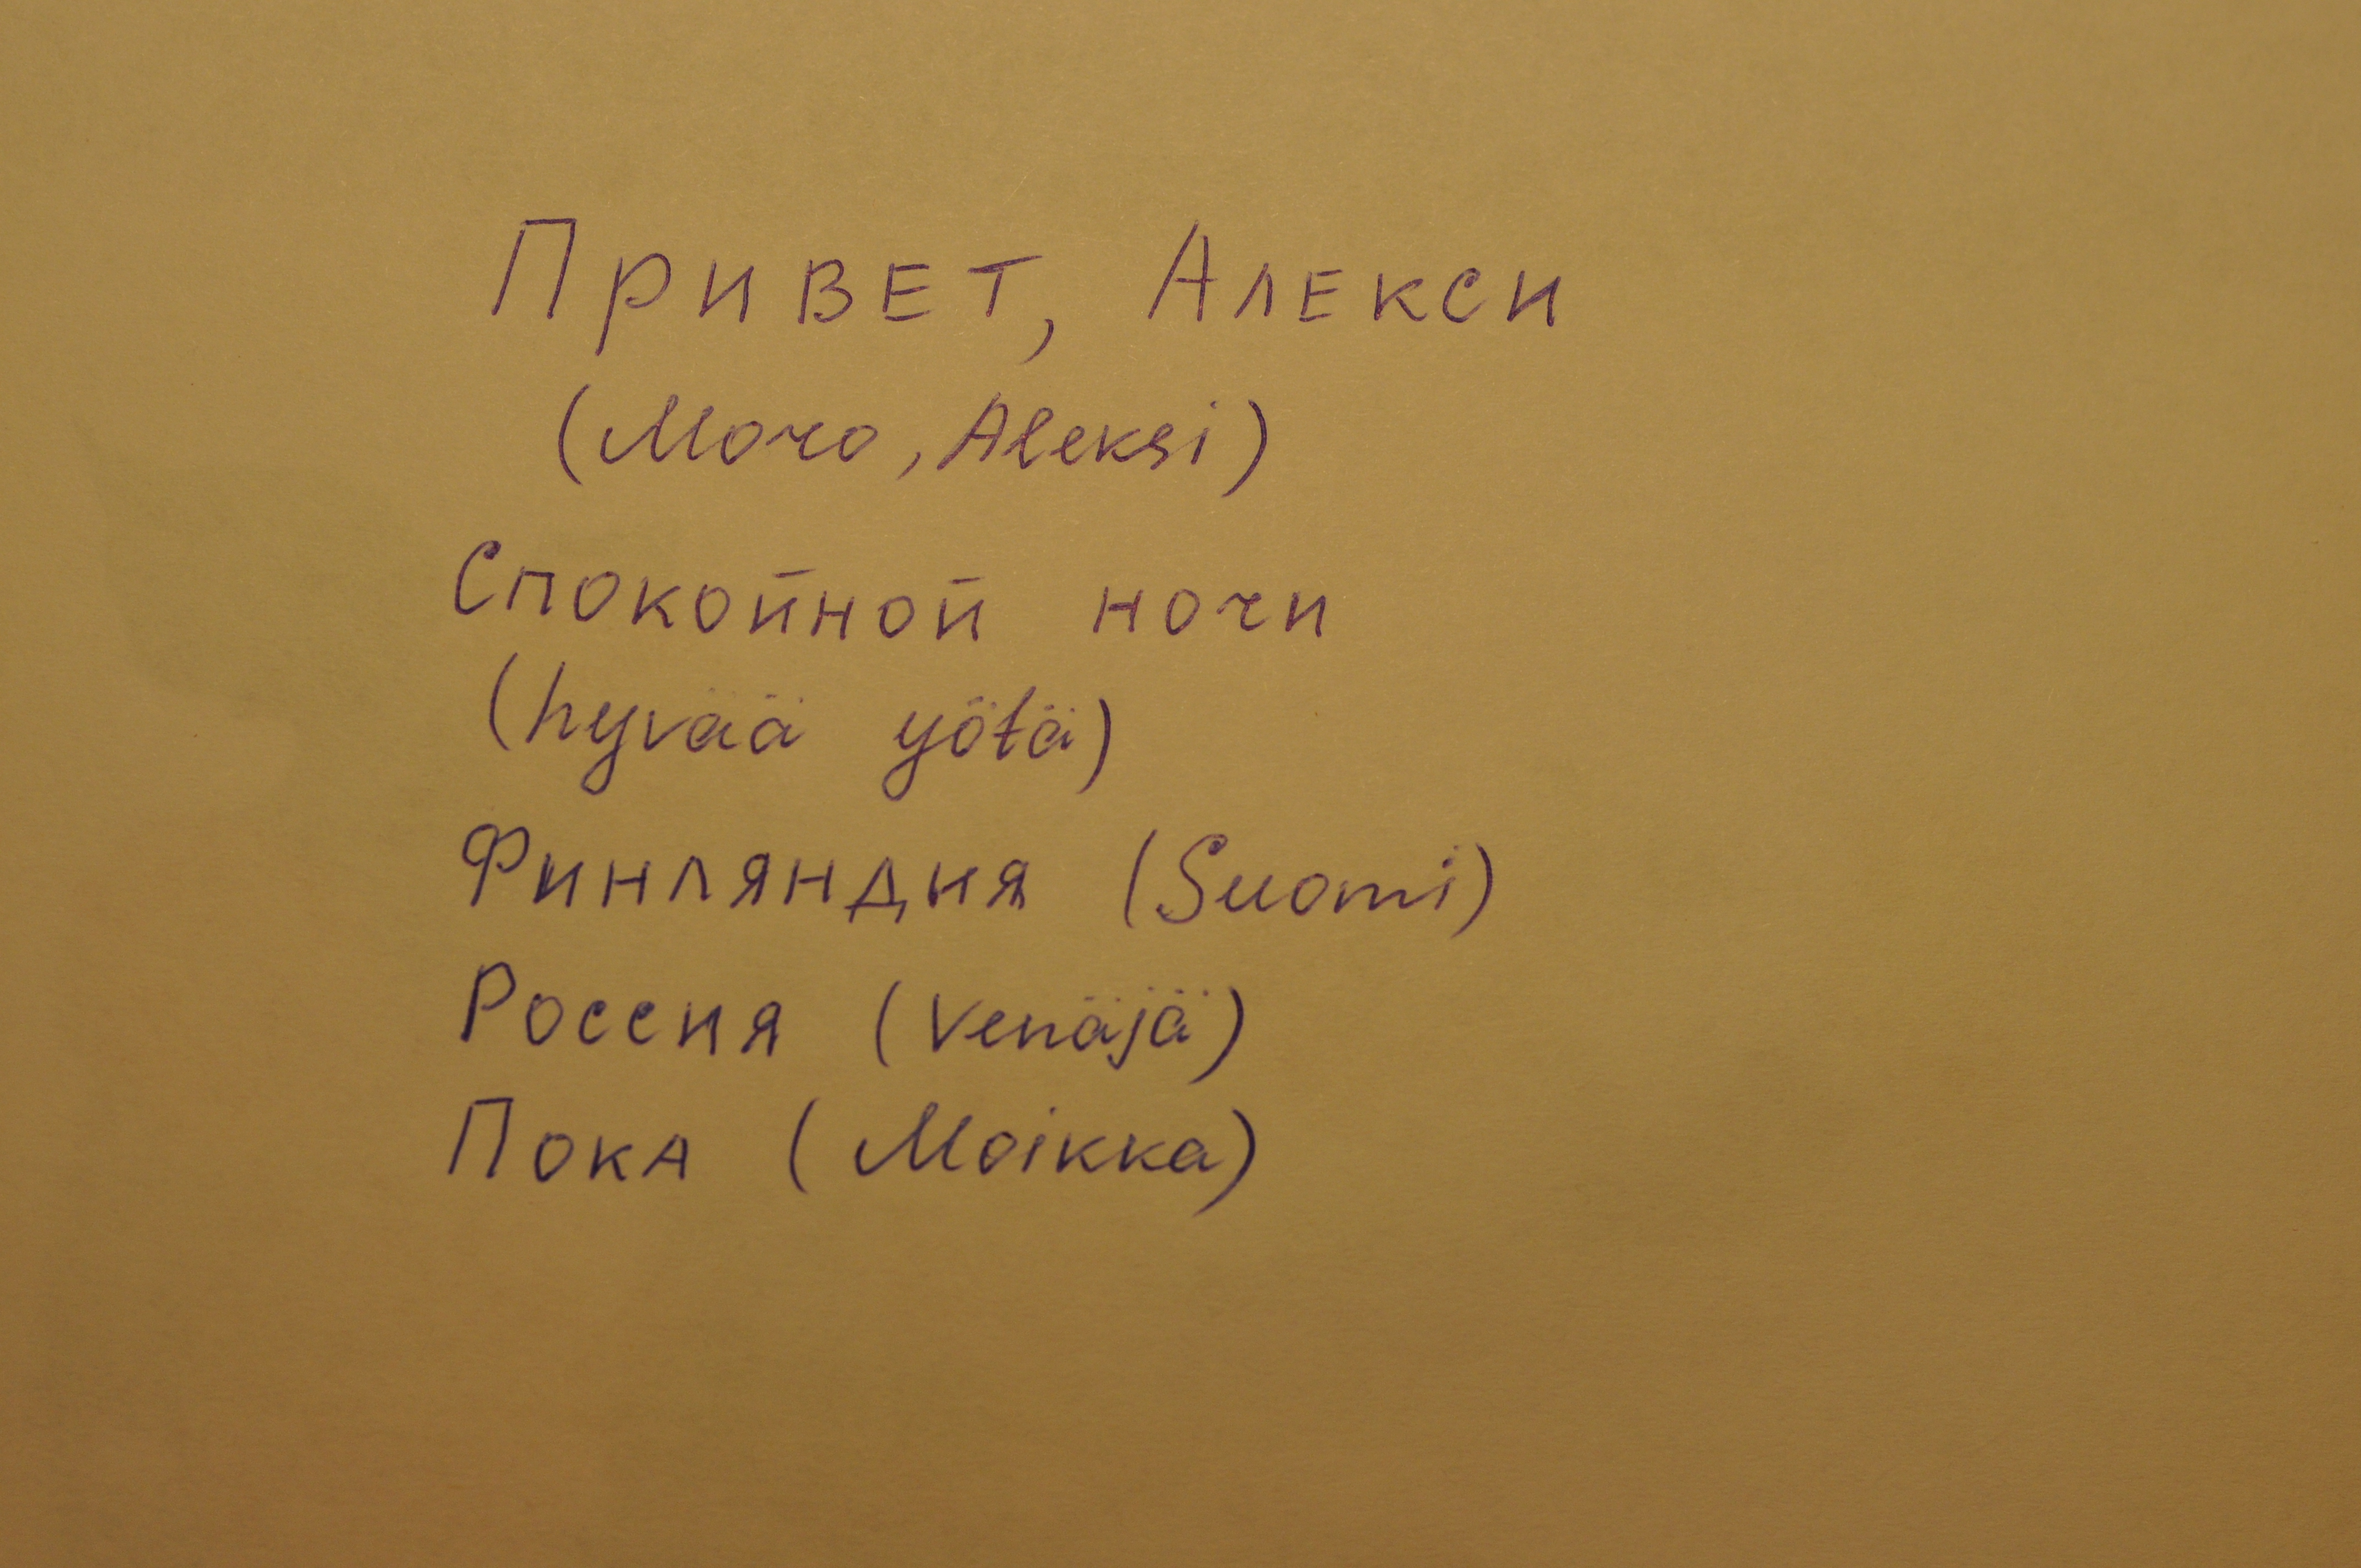 Привет, Алекси
(Moro, Aleksi)
Спокойной ночи
(hyvää yötä)
Финляндия (Suomi)
Россия (Venäjä)
Пока (Moikka)